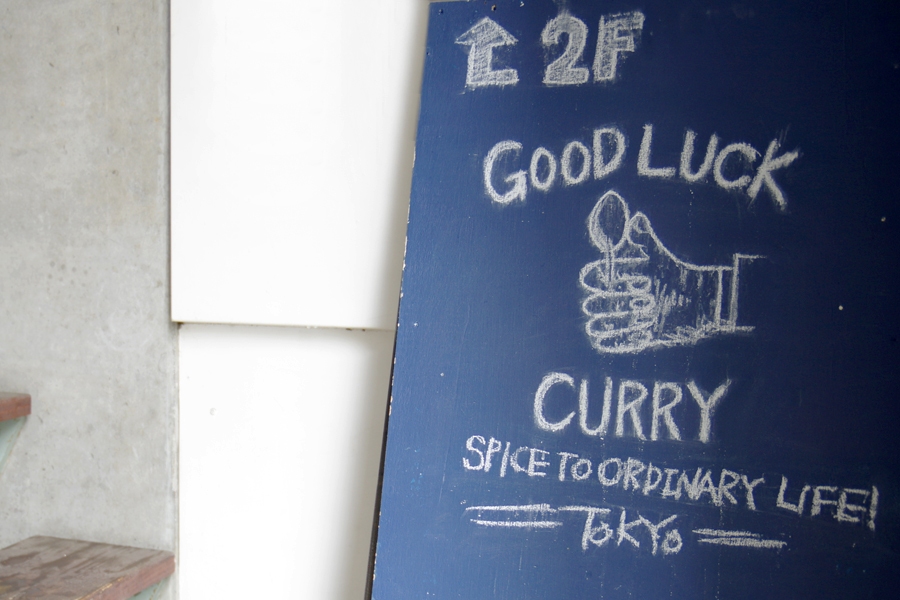 2F
GOOD LUCK
CURRY
SPICE TO ORDINARY LIFE!
TOKYO